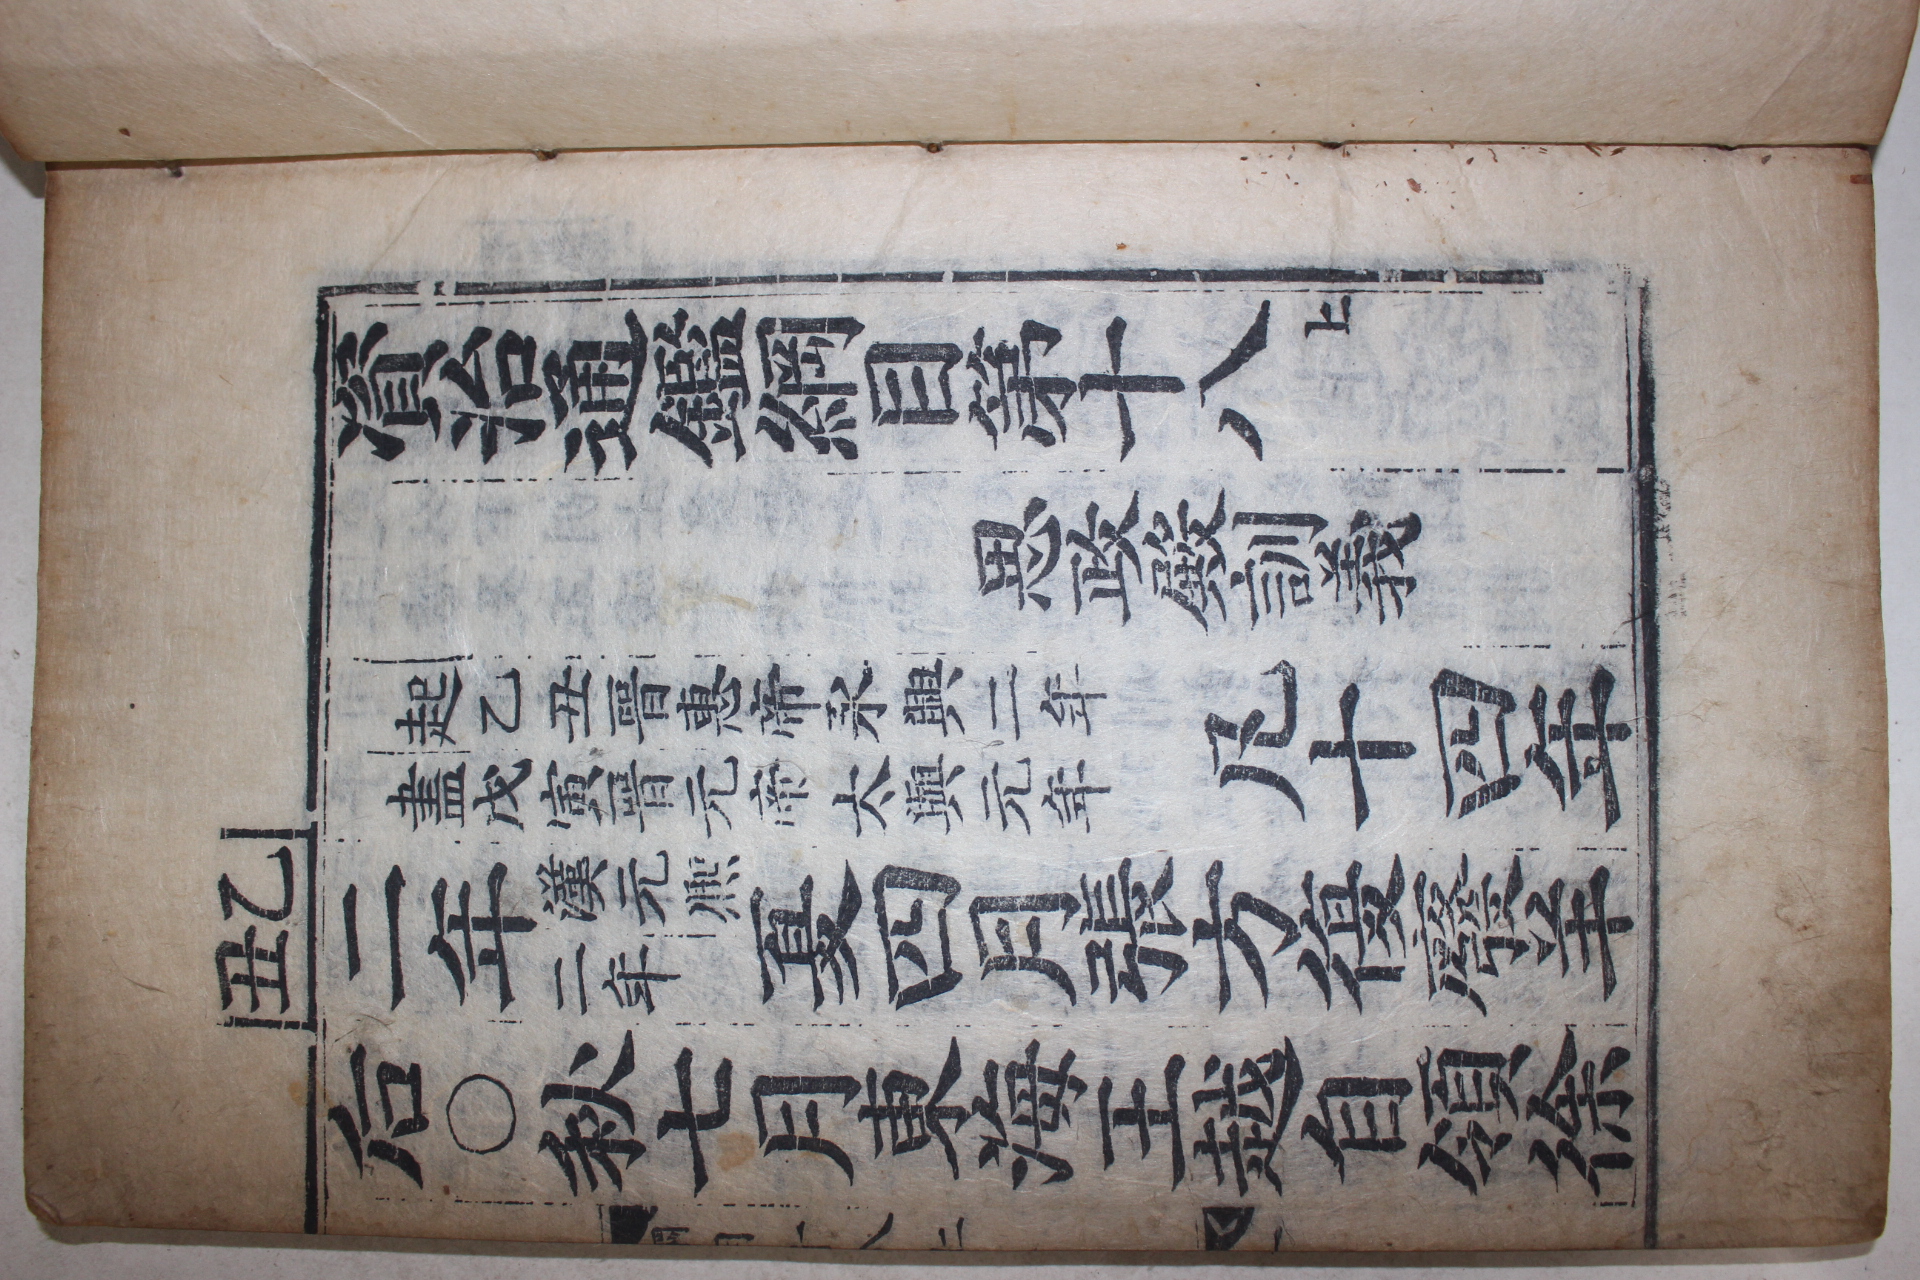 資治通鑑綱目第十八上
思政殿訓義
起乙丑晉惠帝永興二年
盡戊寅晉元帝太興元年
凡十四年
乙丑
二年
漢元熙
二年
夏四月張方復廢羊
后○秋七月東海王越自領徐